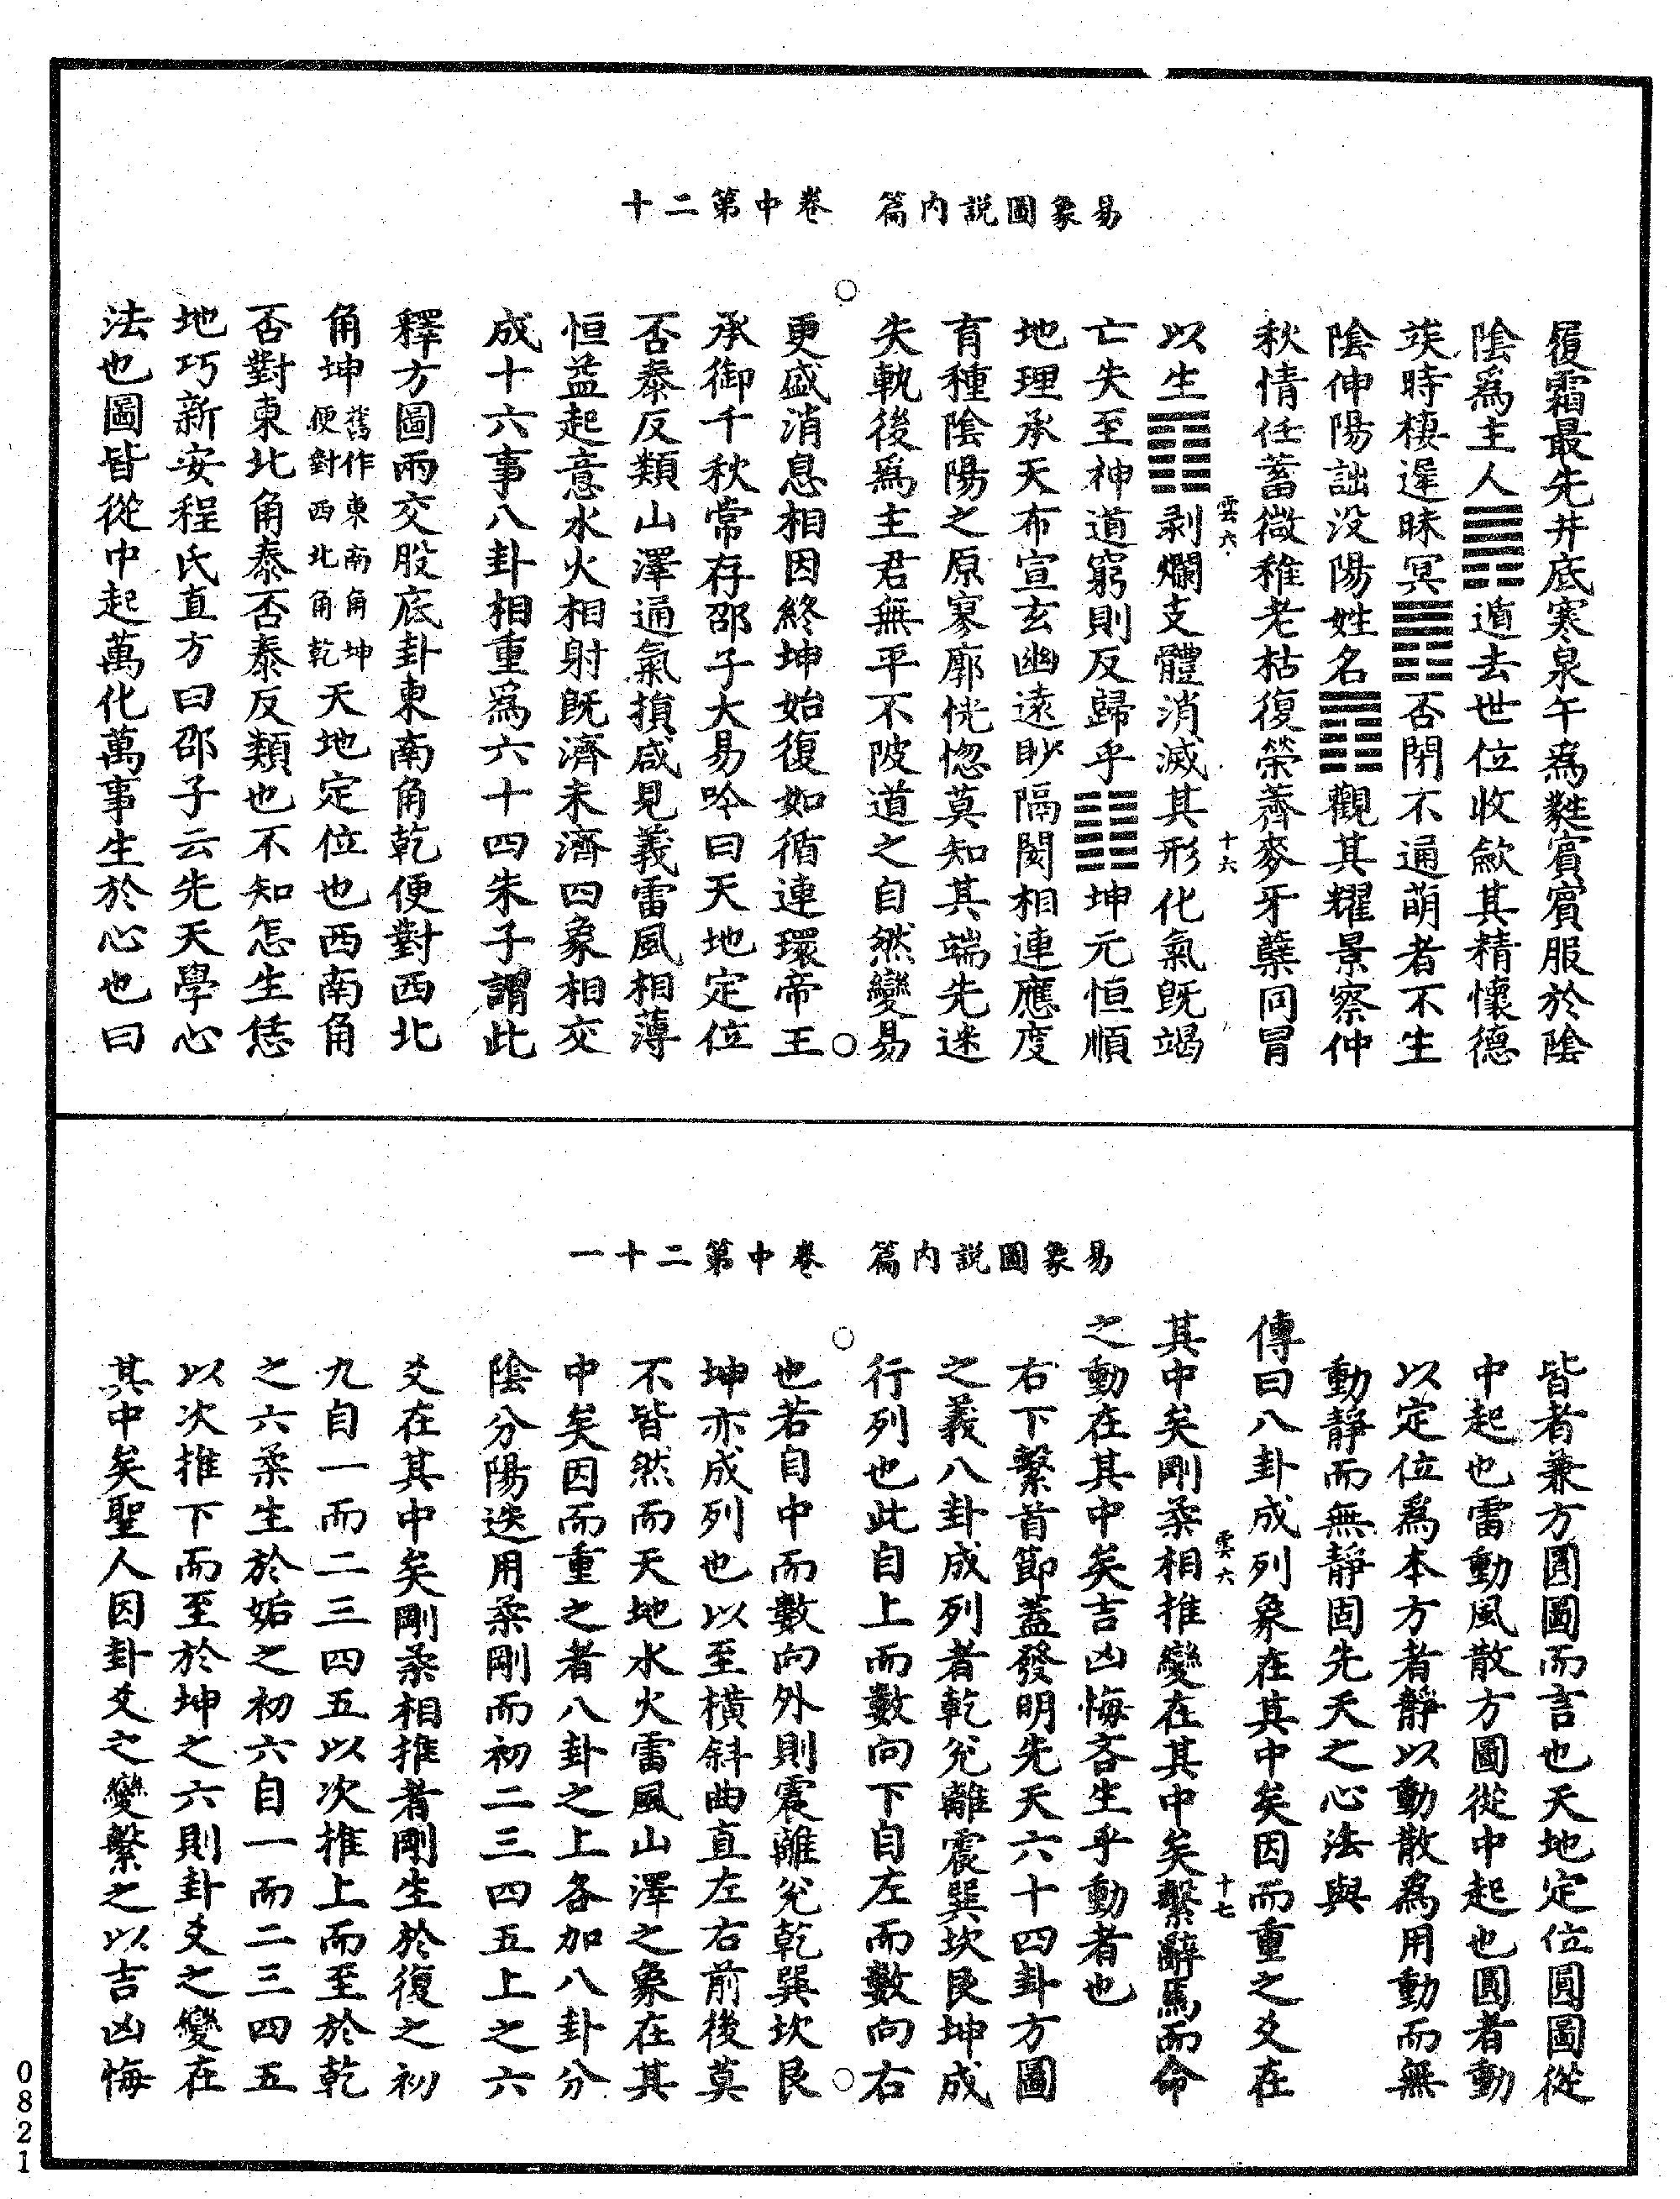 易象圖説内篇　卷中第二十
履霜最先井底寒泉午為蕤賓賓服於陰
陰為主人䷠遁去世位收歛其精懷德
竢時棲遲昧冥䷋否閉不通萌者不生
陰伸陽詘没陽姓名䷓觀其耀景察仲
秋情任蓄微稚老枯復榮薺麥牙蘖同冒
以生䷖剥爛支體消滅其形化氣既竭
亡失至神道窮則反歸乎䷁坤元恒順
地理承天布宣玄幽遠眇隔閡相連應度
育種陰陽之原寥廓恍惚莫知其端先迷
失軌後為主君無平不陂道之自然變易
更盛消息相因終坤始復如循連環帝王
承御千秋常存邵子大易吟曰天地定位
否泰反類山澤通氣損咸見義雷風相薄
恒益起意水火相射既濟未濟四象相交
成十六事八卦相重為六十四朱子謂此
釋方圖兩交股底卦東南角乾便對西北
角坤舊作東南角坤便對西北角乾天地定位也西南角
否對東北角泰否泰反類也不知怎生恁
地巧新安程氏直方曰邵子云先天學心
法也圖皆從中起萬化萬事生於心也曰
雲六
十六
易象圖説内篇　卷中第二十一
皆者兼方圓圖而言也天地定位圓圖從
中起也雷動風散方圖從中起也圓者動
以定位為本方者靜以動散為用動而無
動靜而無靜固先天之心法與
傳曰八卦成列象在其中矣因而重之爻在
其中矣剛柔相推變在其中矣繫辭焉而命
之動在其中矣吉凶悔吝生乎動者也
右下繫首節蓋發明先天六十四卦方圖
之義八卦成列者乾兌離震巽坎艮坤成
行列也此自上而數向下自左而數向右
也若自中而數向外則震離兌乾巽坎艮
坤亦成列也以至橫斜曲直左右前後莫
不皆然而天地水火雷風山澤之象在其
中矣因而重之者八卦之上各加八卦分
陰分陽迭用柔剛而初二三四五上之六
爻在其中矣剛柔相推者剛生於復之初
九自一而二三四五以次推上而至於乾
之六柔生於姤之初六自一而二三四五
以次推下而至於坤之六則卦爻之變在
其中矣聖人因卦爻之變繫之以吉凶悔
雲六
十七
0821